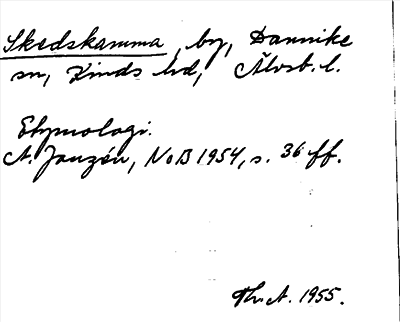 Skedskamma, by, Dannike
sn, Kinds hd, Älvsb. l.
Etymologi.
A. Janzén, NoB 1954, s. 36 ff.
Th. A. 1955.